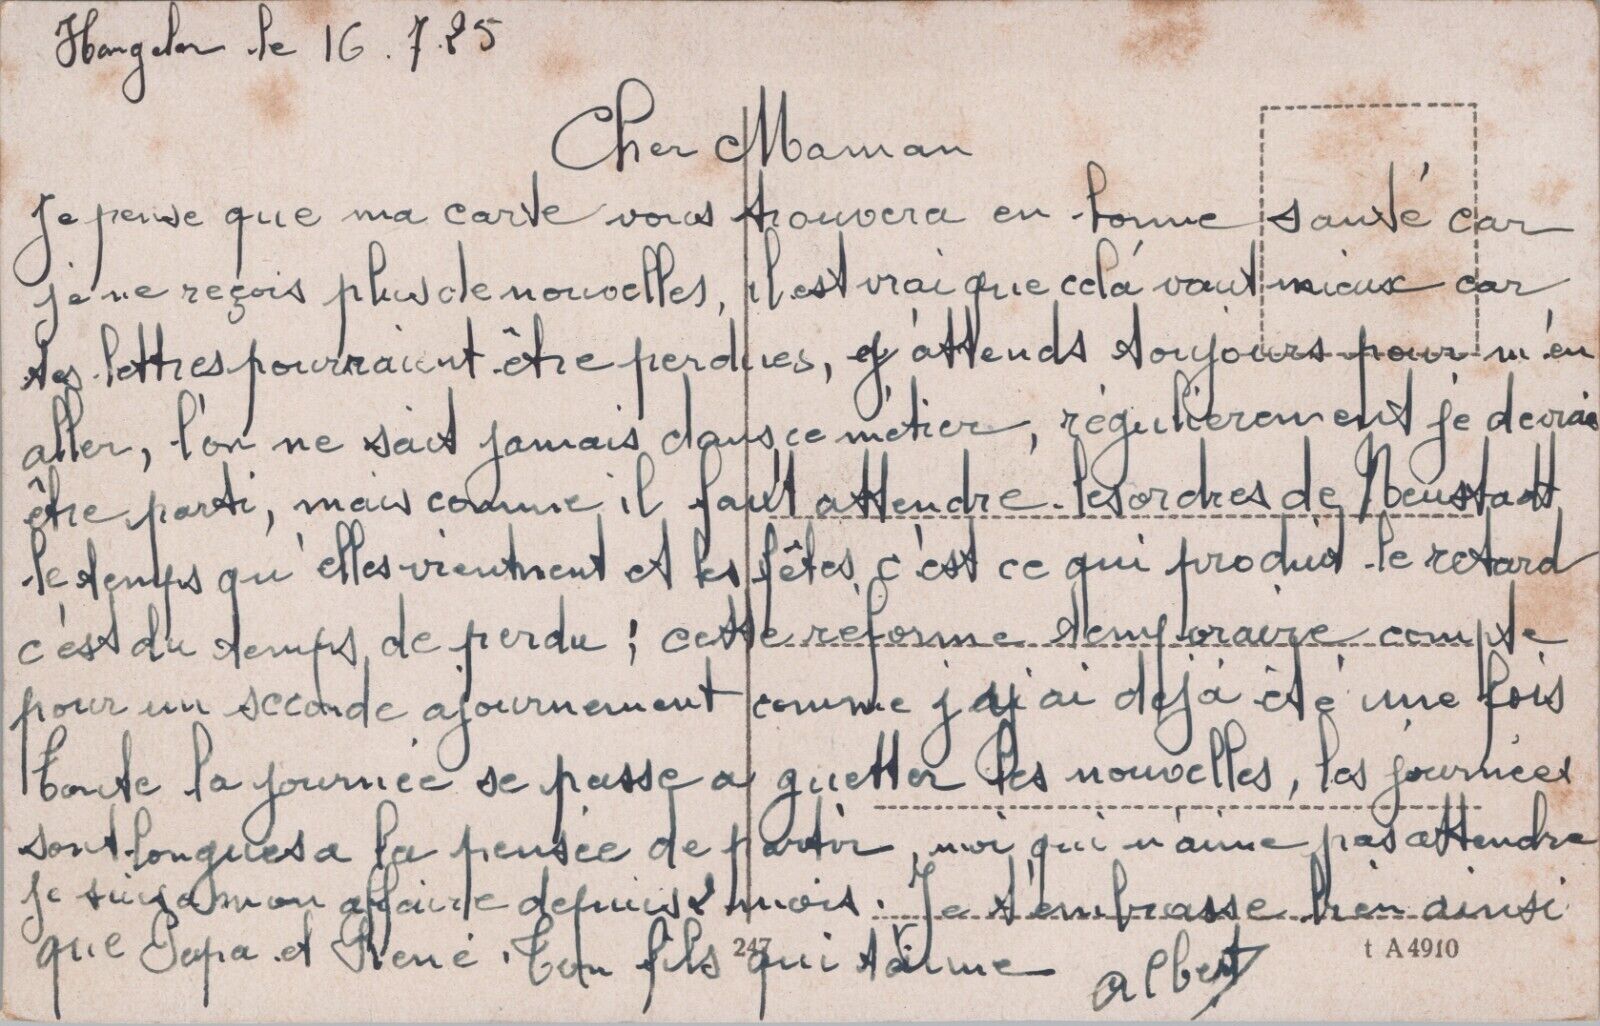 Hangelar le 16.7.25
Cher Maman
Je pense que ma carte vous trouvera en bonne santé car
je ne reçois plus de nouvelles, il est vrai que celà vaut mieux car
tes lettres pourraient être perdues, j'attends toujours pour m'en
aller, l'on ne sait jamais dans ce métier, régulièrement je devrais
être parti, mais comme il faut attendre les ordres de Neustadt
le temps qu'elles viennent et les fêtes c'est ce qui produit le retard
c'est du temps de perdu ; cette réforme temporaire compte
pour un seconde ajournement comme j'ai déjà été une fois
toute la journée se passe a guetter les nouvelles, les journées
sont longues a la pensée de partir, moi qui n'aime pas attendre
je suis a mon affaire depuis 2 mois. Je t'embrasse bien ainsi
que Papa et René. Ton fils qui t'aime
Albert
247
t A4910